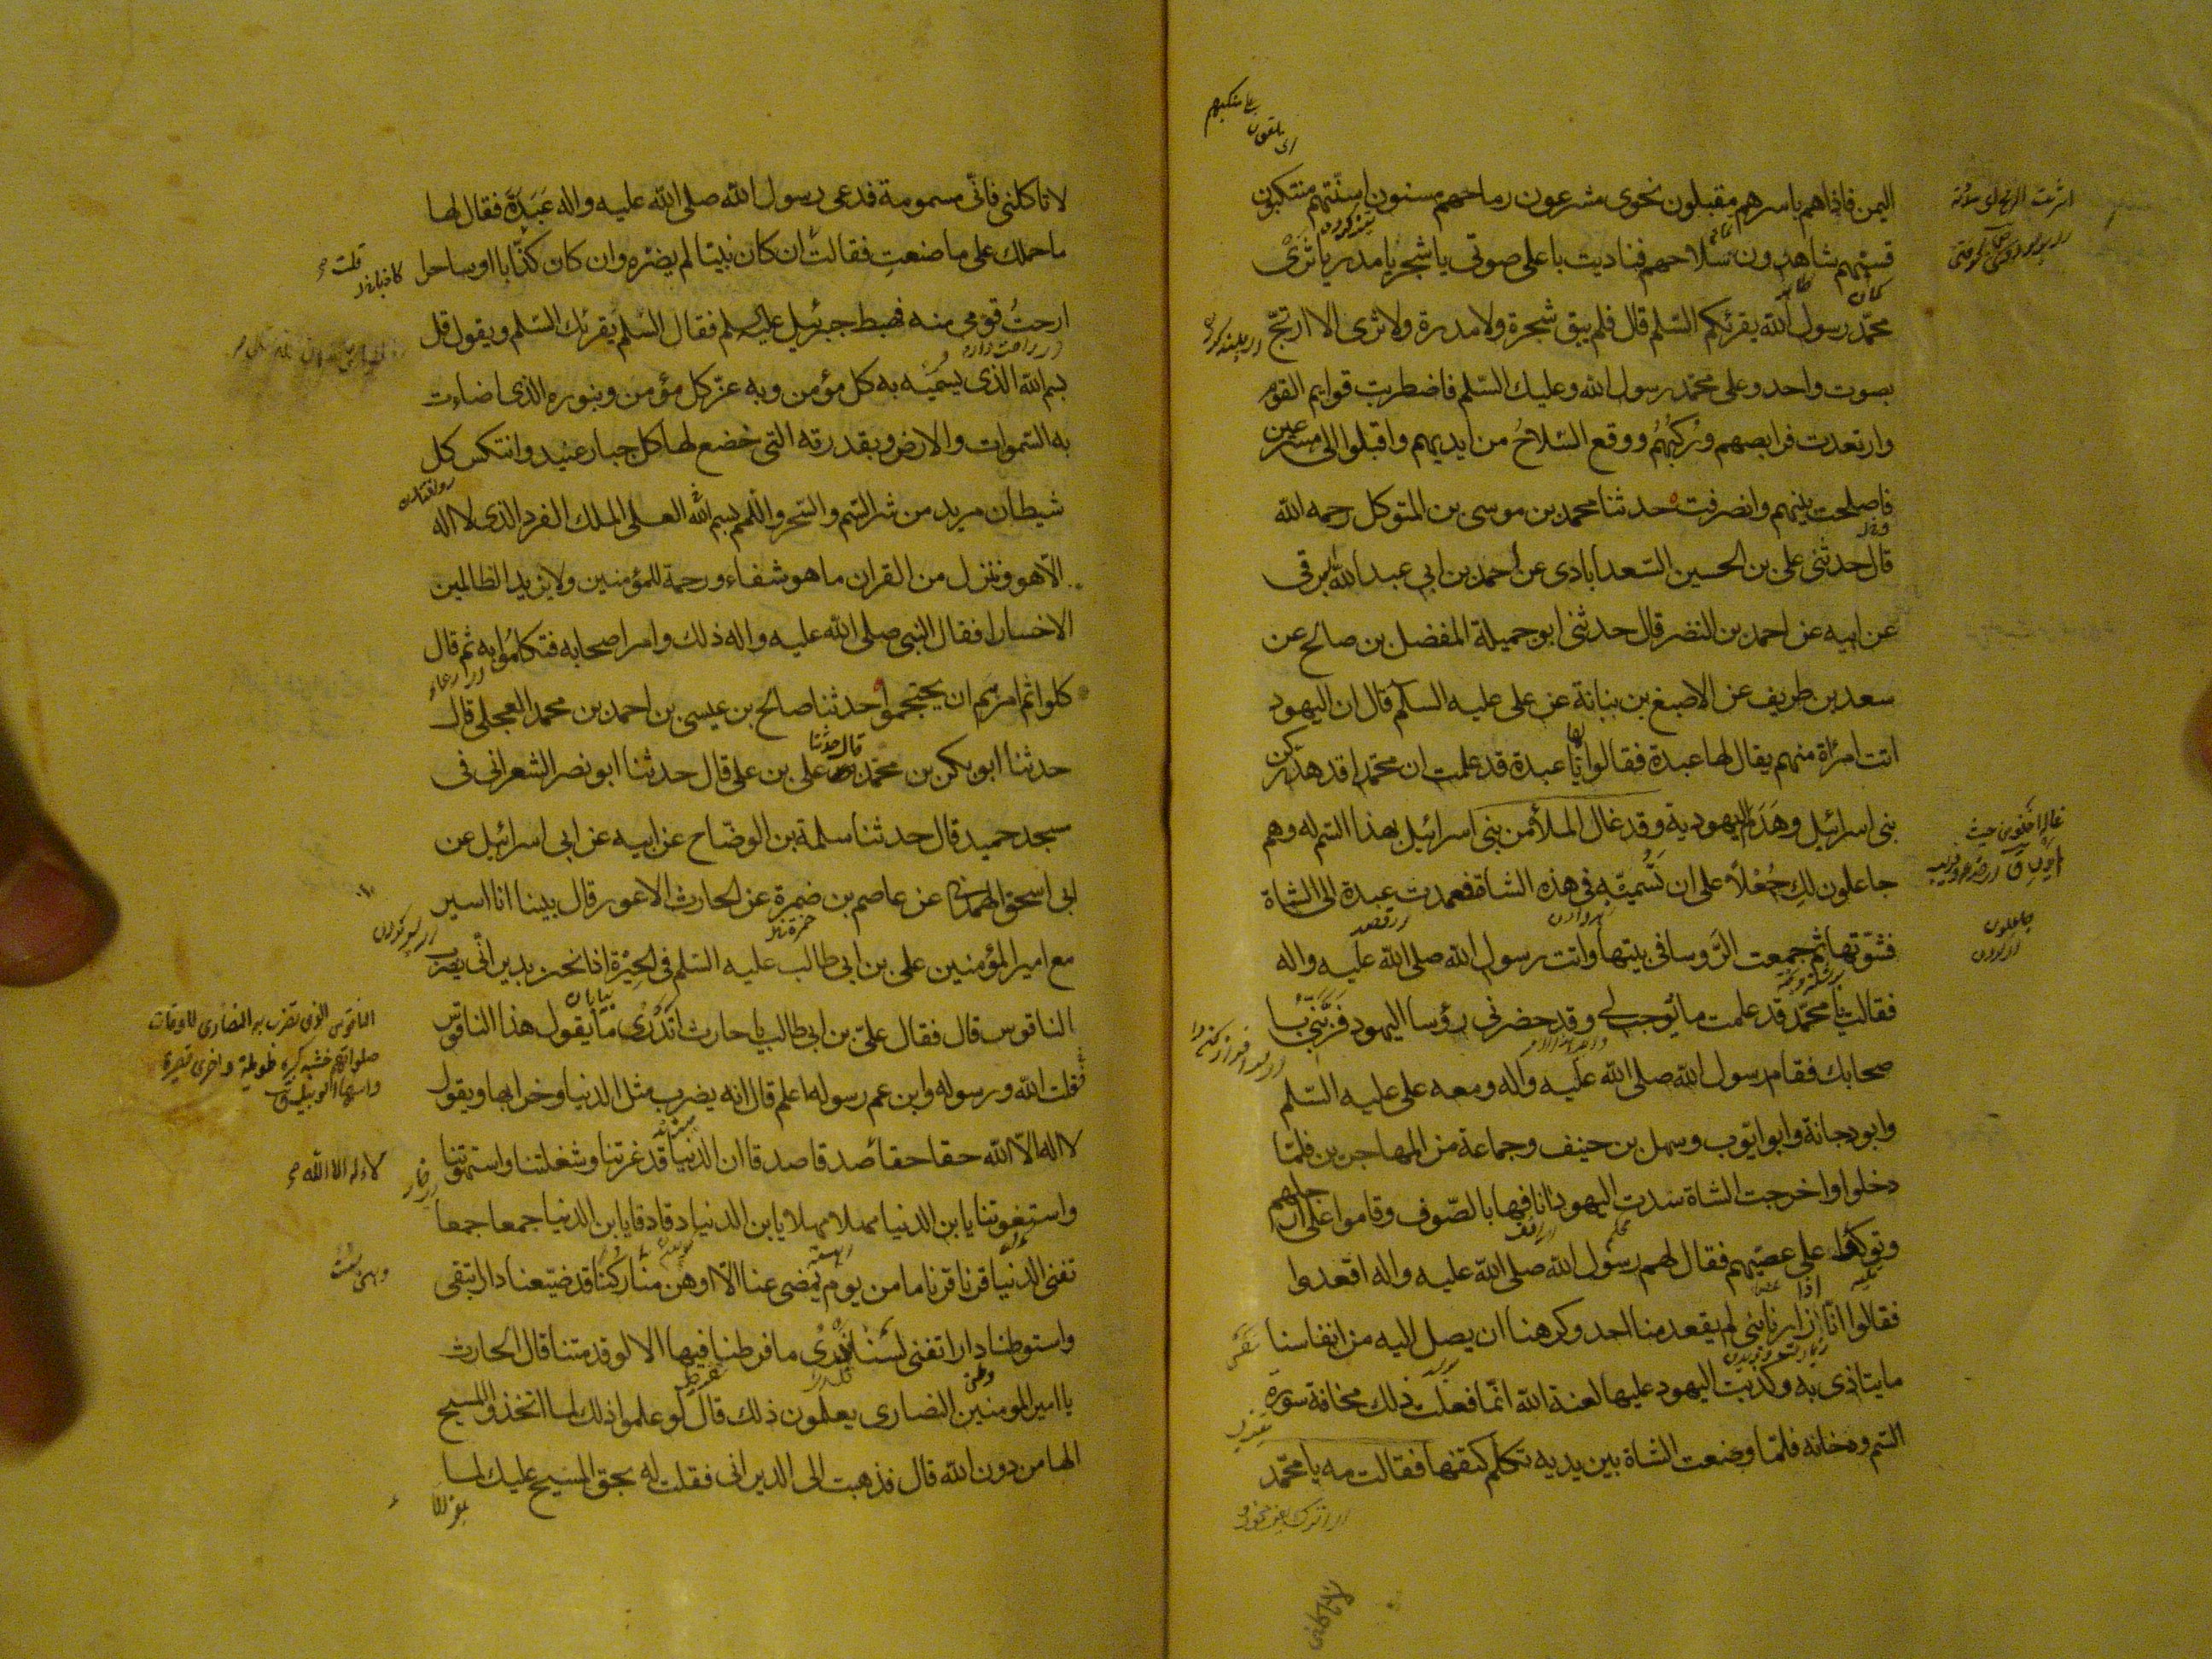 اليمن فاذاهم باسرهم مقبلون نحوى مشرعون رماحهم مسنون اسنّتهم متنكبون
قسيّهم شاهرون سلاحهم فناديت باعلى صوتى يا شجر يا مدر يا ثرى
محمّد رسول الله يقرئكم السّلم قال فلم يبق شجرة ولا مدرة ولا ثرى الا ارتجّ
بصوت واحد وعلى محمّد رسول الله وعليك السّلم فاضطربت قوايم القوم
وارتعدت فرايصهم وركبهم ووقع السّلاح من ايديهم واقبلوا الى مسرعين
فاصلحت بينهم وانصرفت حدثنا محمد بن موسى بن المتوكل رحمه الله
قال حدثنى على بن الحسين السّعدابادى عن احمد بن ابى عبد الله البرقى
عن ابيه عن احمد بن النضر قال حدثنى ابو جميلة المفضل بن صالح عن
سعد بن طريف عن الاصبغ بن نباتة عن على عليه السلم قال ان اليهود
اتت امرأة منهم يقال لها عبدة فقالوا يا عبدة قد علمت ان محمّدا قد هدّ ركن
بنى اسرائيل وهدم اليهودية وقد غال الملأ من بنى اسرائيل بهذا السّم له وهم
جاعلون لك جعلاً على ان تسميّه فى هذه الشاة فعمدت عبدة الى الشاة
فشوتها ثم جمعت الرّوسا فى بيتها واتت رسول الله صلى الله عليه واله
فقالت يا محمّد قد علمت ما توجب لى وقد حضرنى رؤسا اليهود فزيّنى با
صحابك فقام رسول الله صلى الله عليه واله ومعه على عليه السّلم
وابو دجانة وابو ايّوب وسهل بن حنيف وجماعة من المهاجرين فلمّا
دخلوا واخرجت الشاة سدت اليهود انافها بالصّوف وقاموا على ارجلهم
وتوكّؤا على عصيّهم فقال لهم رسول الله صلى الله عليه واله اقعدوا
فقالوا انّا اذا زارنا نبى لم يقعد منا احد وكرهنا ان يصل اليه من انفاسنا
ما يتاذى به وكذبت اليهود عليها لعنة الله انّما فعلت ذلك مخافة سورة
السّم ودخانه فلمّا وضعت الشاة بين يديه تكلم كتفها فقالت مه يا محمّد
لا تاكلنى
لا تاكلنى فانّى مسمومة فدعى رسول الله صلى الله عليه واله عبدة فقال لها
ما حملك على ما صنعت فقالت ان كان نبيّا لم يضرّه وان كان كذّابا او ساحرا
ارحتُ قومى منه فهبط جبرئيل عليه السلم فقال السّلم يقرئك السّلم ويقول قل
بسم الله الذى يسميّه به كل مؤمن وبه عزّ كل مؤمن وبنوره الذى اضاءت
به السّموات والارض وبقدرته التى خضع لها كل جبار عنيد وانتكس كل
شيطان مريد من شر السّم والسّحر واللّمم بسم الله العلى الملك الفرد الذى لا اله
الّا هو وننزل من القران ما هو شفاء ورحمة للمؤمنين ولا يزيد الظالمين
الا خسارا فقال النبى صلى الله عليه واله ذلك وامر اصحابه فتكلموا به ثم قال
كلوا ثم امرهم ان يحتجموا حدثنا صالح بن عيسى بن احمد بن محمد العجلى قال
حدثنا ابو بكر بن محمّد قال حدثنا على بن على قال حدثنا ابو نصر الشعرانى فى
مسجد حميد قال حدثنا سلمة بن الوضّاح عن ابيه عن ابى اسرائيل عن
ابى اسحق الهمدانى عن عاصم بن ضمرة عن الحارث الاعور قال بينا انا اسير
مع امير المؤمنين على بن ابى طالب عليه السّلم فى الحيرة اذا نحن بديرانّى يضرب
الناقوس قال فقال علىّ بن ابى طالب يا حارث اتدرى ما يقول هذا الناقوس
فقلت الله ورسوله وابن عم رسوله اعلم قال انه يضرب مثل الدنيا وخرابها ويقول
لا اله الّا الله حقا حقا صدقا صدقا ان الدنيا قد غرّتنا وشغلتنا واستهوتنا
واستغوتنا يا بن الدنيا مهلا مهلا يا بن الدنيا دقا دقا يا بن الدنيا جمعا جمعا
تفنى الدنيا قرنا قرنا ما من يوم يمضى عنا الّا اوهن منّا ركنا قد ضيّعنا دارا تبقى
واستوطنا دارا تفنى لسنا ندرى ما فرطنا فيها الا لو قد متنا قال الحارث
يا امير المومنين النصارى يعلمون ذلك قال لو علموا ذلك لما اتخذوا المسيح
الها من دون الله قال فذهبت الى الديرانى فقلت له بحق المسيح عليك لما
الناقوس الذى تضرب به النصارى لاوقات
صلواتهم خشبة كبيرة طويلة واخرى قصيرة
لا اله الا الله